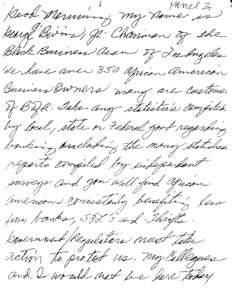 Panel 2
Good Morning my name is
George Bivins, Jr. Chairman of the
Black Business Assn of Los Angeles
We have over 350 African American
Business Owners many are customers
of BofA. Take any statistics compiled
by local, state or Federal govt regarding
banking, including the many
reports compiled by independent
surveys and you will find African
American consistently benefiting less
from banks, S&L's and Thrifts.
Government/Regulators must take
action to protect us. My Colleagues
and I would not be here today